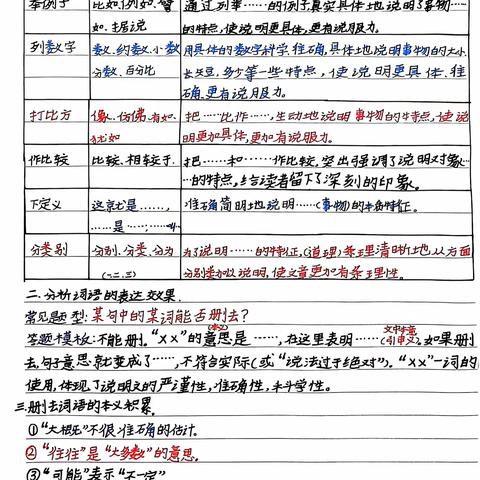 举例子 比如、例如、譬如、据说 通过列举……的例子真实具体地说明了事物……
的特点,使说明更具体,更有说服力。
列数字 数、约数、小数 用具体的数字科学、准确、具体地说明事物的大小、
分数、百分比 长短、多少等一些特点,使说明更具体、准
确、更有说服力。
打比方 像、仿佛、有如、 把……比作……,生动地说明事物的特点,使说
犹如 明更加具体,更加有说服力。
作比较 比较、相较于、 把……和……作比较,突出强调了说明对象……
的特点,给读者留下了深刻的印象。
下定义 这就是……, 准确简明地说明……(事物)的本质特征。
……是……
分类别 分别、分类、分为 为了说明……的特征,(道理)条理清晰地,从方面
(一、二、三) 分别类加以说明,使文章更加有条理性。
二.分析词语的表达效果.
常见题型:某句中的某词能否删去?
答题模板:不能删。“XX”的(本义)意思是……,在这里表明……(文中本意引申义)如果删
去,句子意思就变成了……,不符合实际(或“说法过于绝对”)。“XX”一词的
使用,体现了说明文的严谨性,准确性,科学性。
三.删去词语的本义积累.
①“大概”不很准确的估计。
②“往往”是“大多数”的意思。
③“可能”表示“不一定”